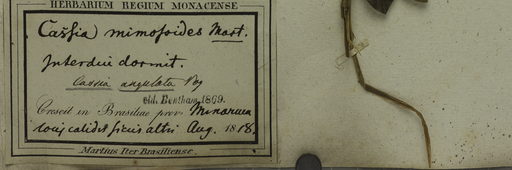 HERBARIUM REGIUM MONACENSE
Cassia mimosoides Mart.
Interdiu dormit.
Cassia angulata Vog
vid. Bentham, 1869.
Crescit in Brasiliae prov. Minarum
locis calidis siccis altis Aug. 1818.
Martius Iter Brasiliense.